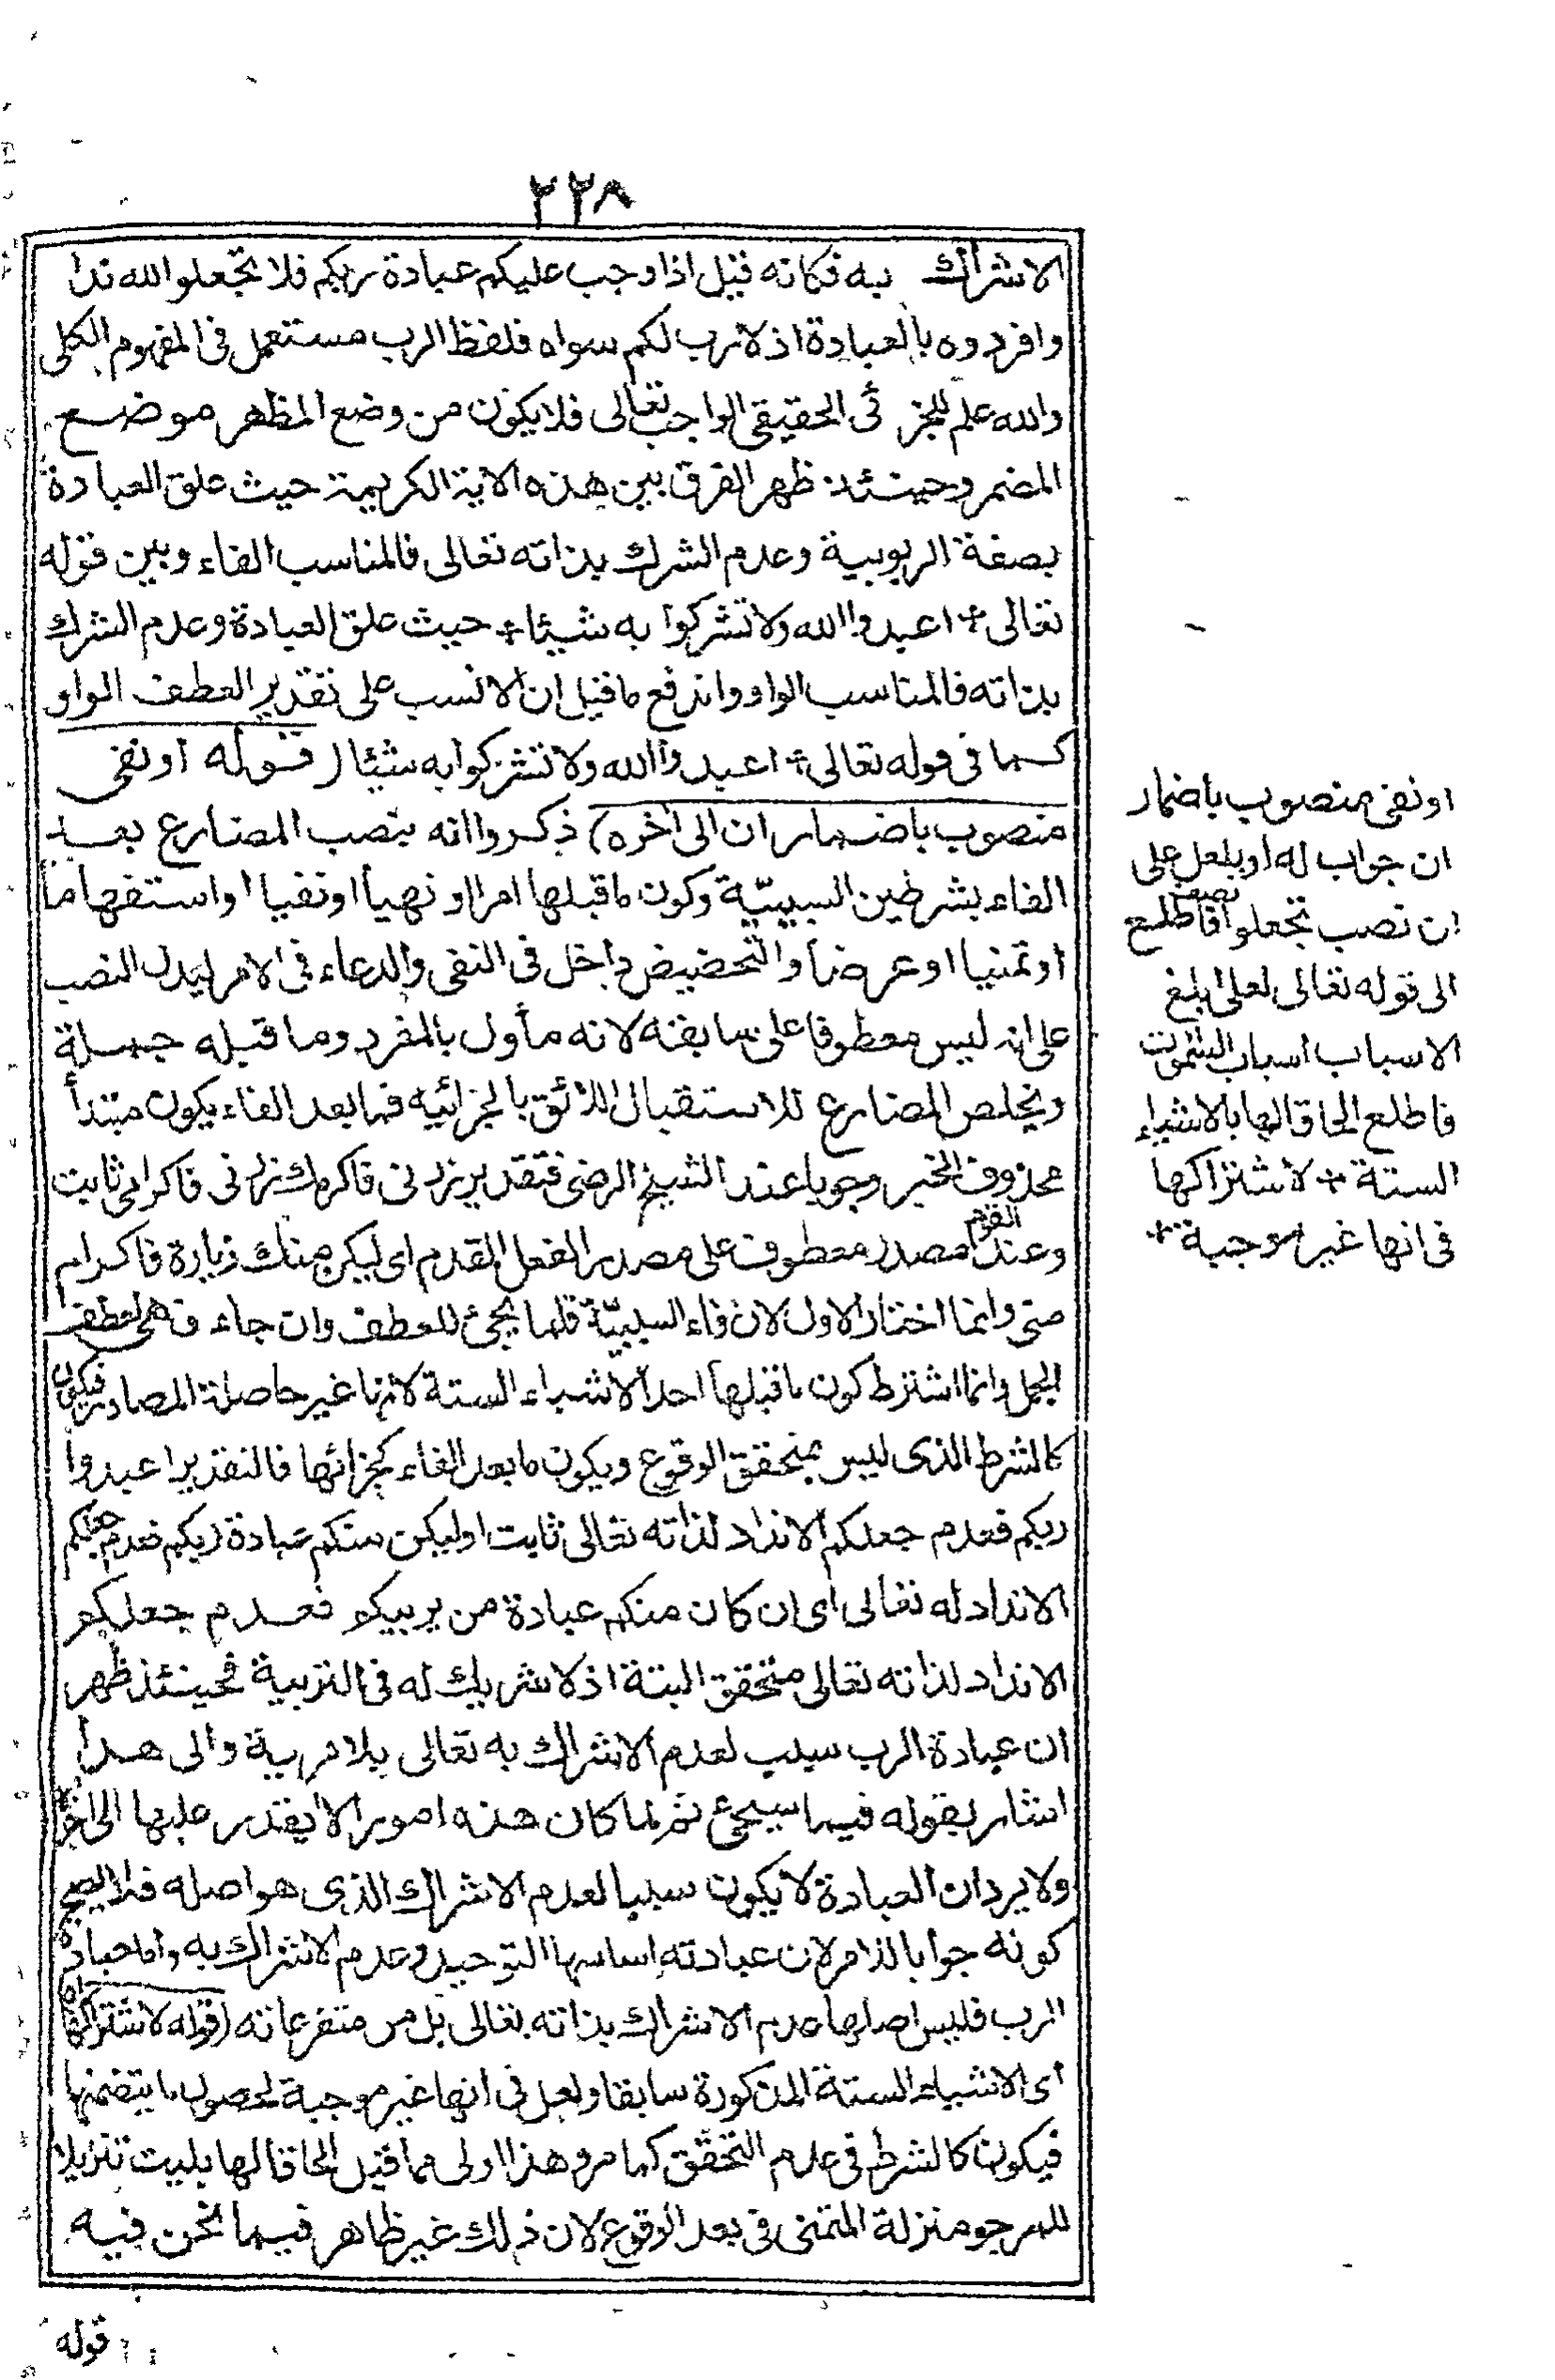 ٢٢٨
الاشراك به فكانه قيل اذا وجب عليكم عبادة ربكم فلا تجعلوا لله ندا
وافردوه بالعبادة اذ لا رب لكم سواه فلفظ الرب مستعمل فى المفهوم الكلى
والله علم للجزئى الحقيقى الواجب تعالى فلا يكون من وضع المظهر موضع
المضمر وحينئذ ظهر الفرق بين هذه الاية الكريمة حيث علق العبادة
بصفة الربوبية وعدم الشرك بذاته تعالى فالمناسب الفاء وبين قوله
تعالى * اعبدوا الله ولا تشركوا به شيئا * حيث علق العبادة وعدم الشرك
بذاته فالمناسب الواو واندفع ما قيل ان الانسب على تقدير العطف الواو
كما فى قوله تعالى * اعبدوا الله ولا تشركوا به شيئا ( قوله او نفى
منصوب باضمار ان الى آخره ) ذكروا انه ينصب المضارع بعد
الفاء بشرطين السببيّة وكون ما قبلها امرا او نهيا او نفيا او استفهاما
او تمنيا او عرضا والتحضيض داخل فى النفى والدعاء فى الامر ليدل النصب
على انه ليس معطوفا على سابقه لانه مأول بالمفرد وما قبله جملة
ويخلص المضارع للاستقبال اللائق بالجزائيه فما بعد الفاء يكون مبتدأ
محذوف الخبر وجوبا عند الشيخ الرضى فتقدير زرنى فاكرمك زرنى فاكرامى ثابت
وعند القوم مصدر معطوف على مصدر الفعل المقدم اى ليكن منك زيارة فاكرام
منى وانما اختار الاول لان فاء السببيّة قلما يجئ للعطف وان جاء فهى لعطف
الجمل وانما اشترط كون ما قبلها احد الاشياء الستة لانها غير حاصلة المصادر فيكون
كالشرط الذى ليس بمتحقق الوقوع ويكون ما بعد الفاء كجزائها فالتقدير اعبدوا
ربكم فعدم جعلكم الانداد لذاته تعالى ثابت او ليكن منكم عبادة ربكم فعدم جعلكم
الانداد له تعالى اى ان كان منكم عبادة من يربيكم فعدم جعلكم
الانداد لذاته تعالى متحقق البتة اذ لا شريك له فى التربية فحينئذ ظهر
ان عبادة الرب سبب لعدم الاشراك به تعالى بلا مرية والى هذا
اشار بقوله فيما سيجئ ثم لما كان هذه امورا لا يقدر عليها الى آخره
ولا يرد ان العبادة لا يكون سببا لعدم الاشراك الذى هو اصله فلا يصح
كونه جوابا للامر لان عبادته اساسها التوحيد وعدم الاشراك به واما عبادة
الرب فليس اصلها عدم الاشراك بذاته تعالى بل من متفرعاته ( قوله لاشتراكها
اى الاشياء الستة المذكورة سابقا ولعل فى انها غير موجبة لحصول ما يتضمنها
فيكون كالشرط فى عدم التحقّق كما مر وهذا اولى مما قيل الحاقا لها بليت تنزيلا
للمرجو منزلة المتمنى فى بعد الوقوع لان ذلك غير ظاهر فيما نحن فيه
قوله
او نفى منصوب باضمار
ان جواب له او بلعل على
ان نصب تجعلوا نصب فاطلع
الى قوله تعالى لعلى ابلغ
الاسباب اسباب السموت
فاطلع الحاقا لها بالاشياء
الستة * لاشتراكها
فى انها غير موجبة *